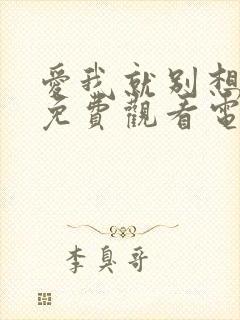 愛我就別想
免費觀看電
李臭哥